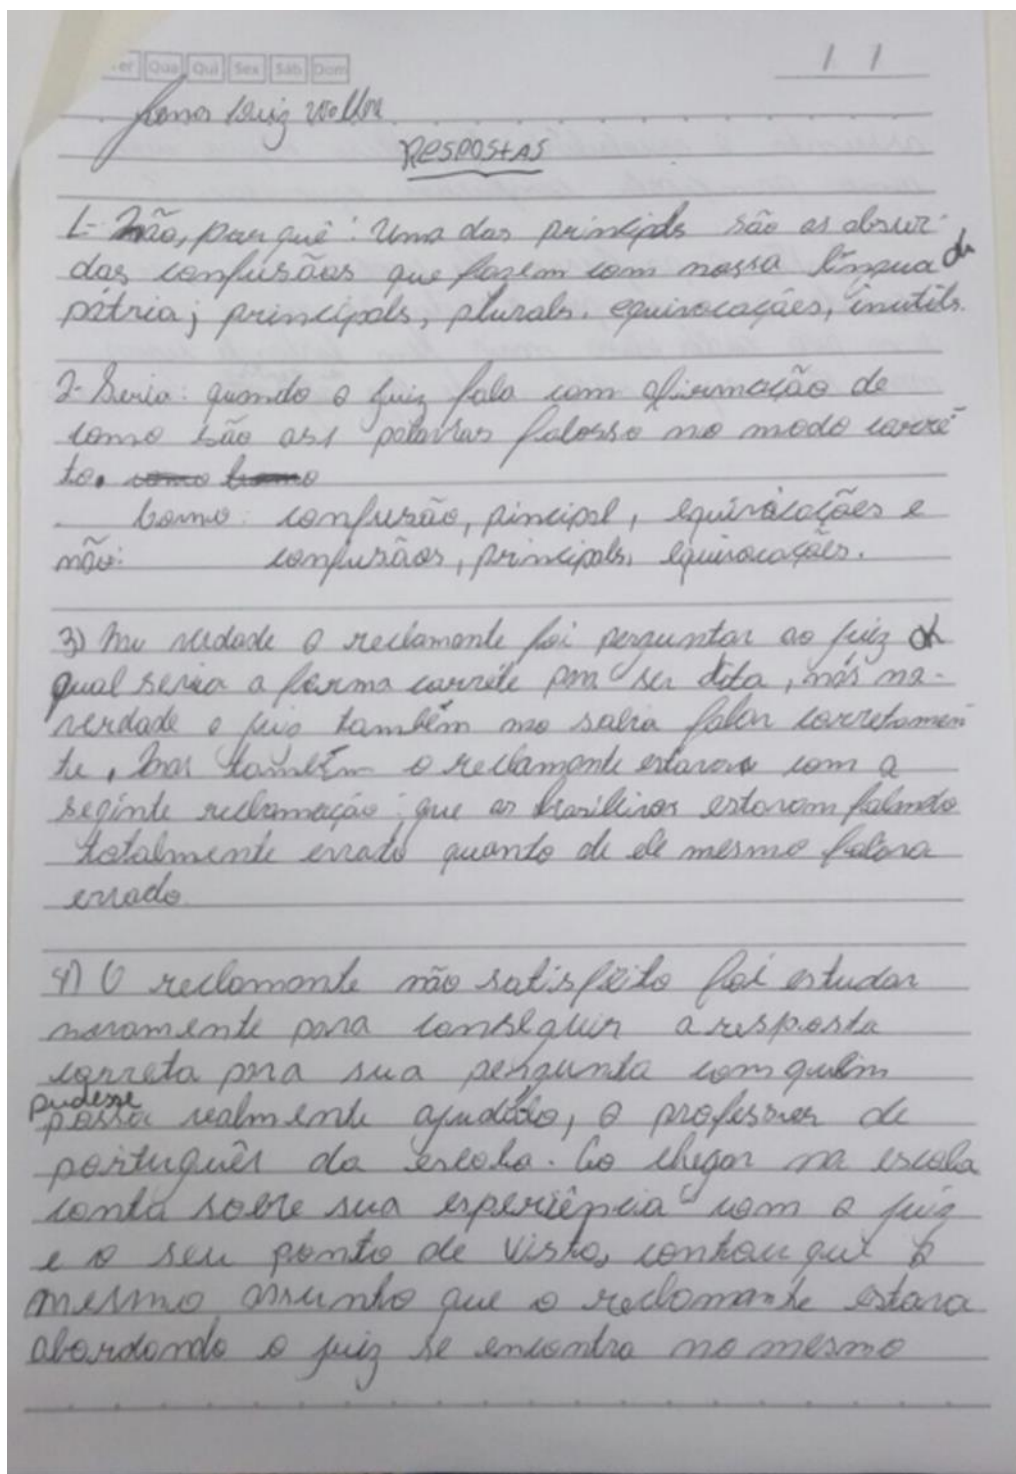 Ter Qua Qui Sex Sáb Dom
/ /
Luiz
RESPOSTAS
1- Não, por quê: Uma das principals são as absur-
das confusãos que fazem com nossa língua
pátria; principals, plurals, equivocações, inutils.
2- Seria: quando o juiz fala com afirmação de
como são as palavras no modo corre
to. como como
Como: confusão, pincipal, equivocações e
não: confusãos, principals, equivocações.
3) verdade o reclamante foi perguntar ao juiz
qual seria a forma corréte pra ser dita, más na-
verdade o juis também não sabia falar corretamen
te, mas também o reclamante estava com a
seginte reclamação: que os brasileiros estavam falando
totalmente errado quanto de ele mesmo falava
errado
4) O reclamante não satisfeito foi estudar
novamente para conseguir a resposta
correta pra sua pergunta com quem
pudesse
possa realmente ajudálo, o professor de
português da escola. Ao chegar na escola
conta sobre sua experiência com o juiz
e o seu ponto de vista, contou que o
mesmo assunto que o reclamante estava
abordando o juiz se encontra no mesmo